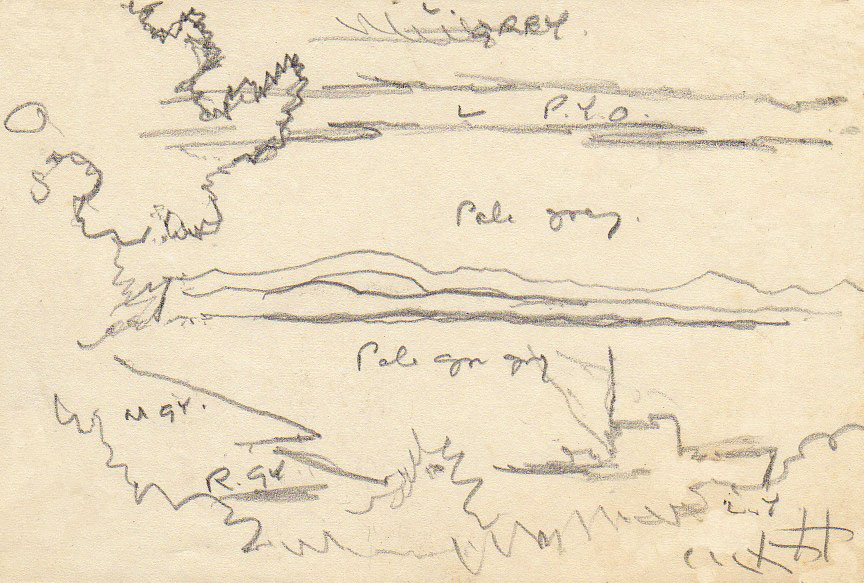 GREY.
P.Y.O.
Pale grey.
Pale grn gry
M GY.
R. GY.